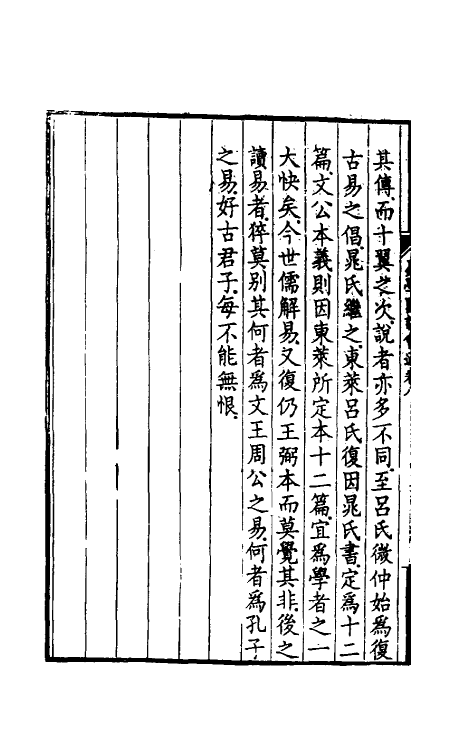 其傳.而十翼之次.說者亦多不同.至呂氏微仲始為復
古易之倡.晁氏繼之.東萊呂氏復因晁氏書.定為十二
篇.文公本義則因東萊所定本十二篇.宜為學者之一
大快矣.今世儒解易.又復仍王弼本而莫覺其非.後之
讀易者.猝莫別其何者為文王周公之易.何者為孔子
之易.好古君子.每不能無恨.